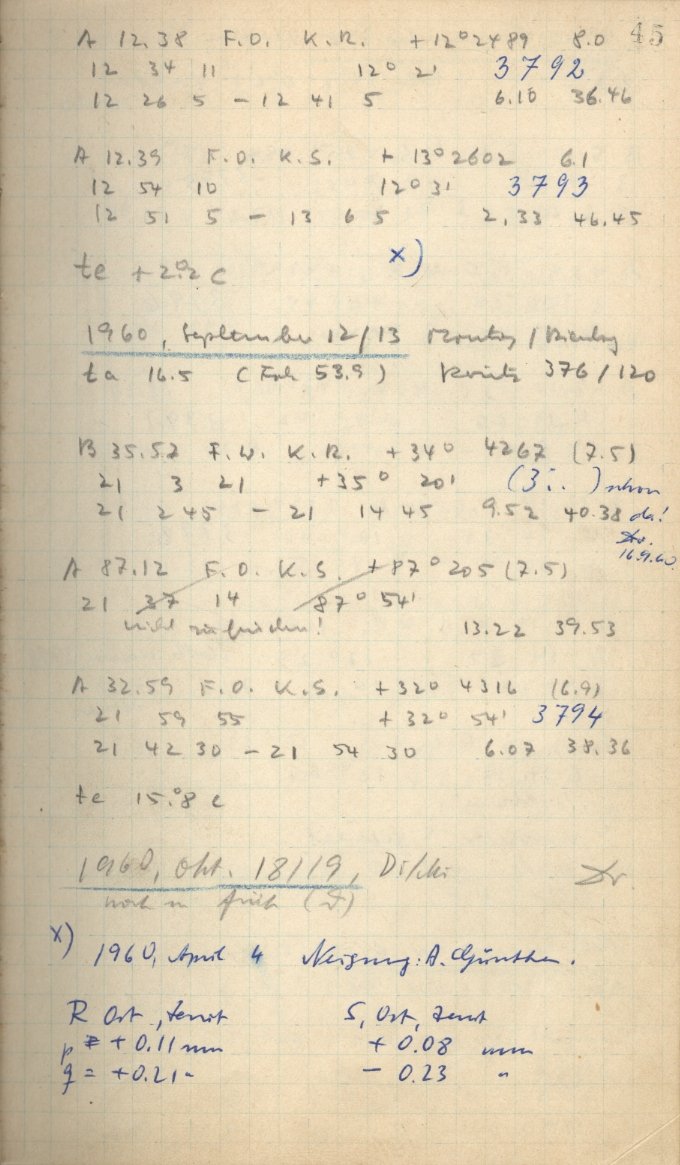 A 12.38 F.O. K.R. +12° 2489 8.0 45
12 34 11 12° 21' 3792
12 26 5 - 12 41 5 6.10 36.46
A 12.39 F.O. K.S. + 13° 2602 6.1
12 54 10 12° 31' 3793
12 51 5 - 13 6 5 2.33 46.45
te + 2°.2 C
x)
1960, September 12/13 Montag / Dienstag
ta 16.5 (Fok 53.9) 376/120
B 35.52 F.W. K.R. +34° 4267 (7.5)
21 3 21 +35° 20' (3i..) schon
21 2 45 - 21 14 45 9.52 40.38 da!
16.9.60
A 87.12 F.O. K.S. +87° 205 (7.5)
21 37 14 87° 54'
nicht zu finden! 13.22 39.53
A 32.59 F.O. K.S. +32° 4316 (6.9)
21 59 55 +32° 54' 3794
21 42 30 - 21 54 30 6.07 38.36
te 15.°8 C
1960, Okt. 18/19, Di/Mi
noch früh
x) 1960, April 4 Neigung: A. Günther.
R Ost, Zenit S, Ost, Zenit
p = + 0.11 mm + 0.08 mm
q = + 0.21 " - 0.23 "